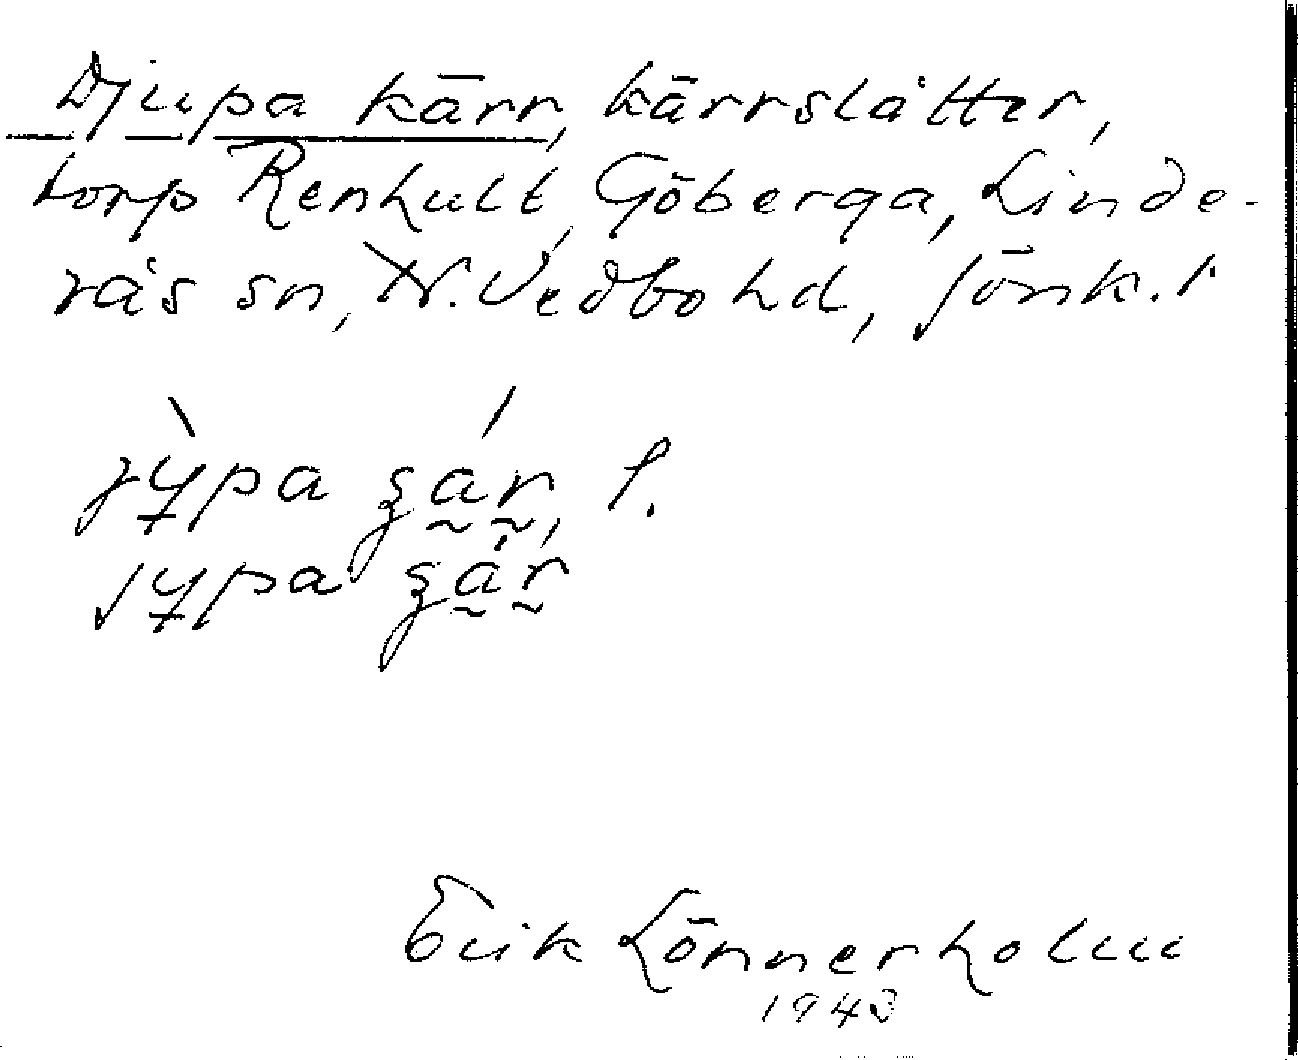 Djupa kärr, kärrslåtter,
torp Renhult, Göberga, Linde-
rås sn, N. Vedbo hd, Jönk. l
Erik Lönnerholm
1943